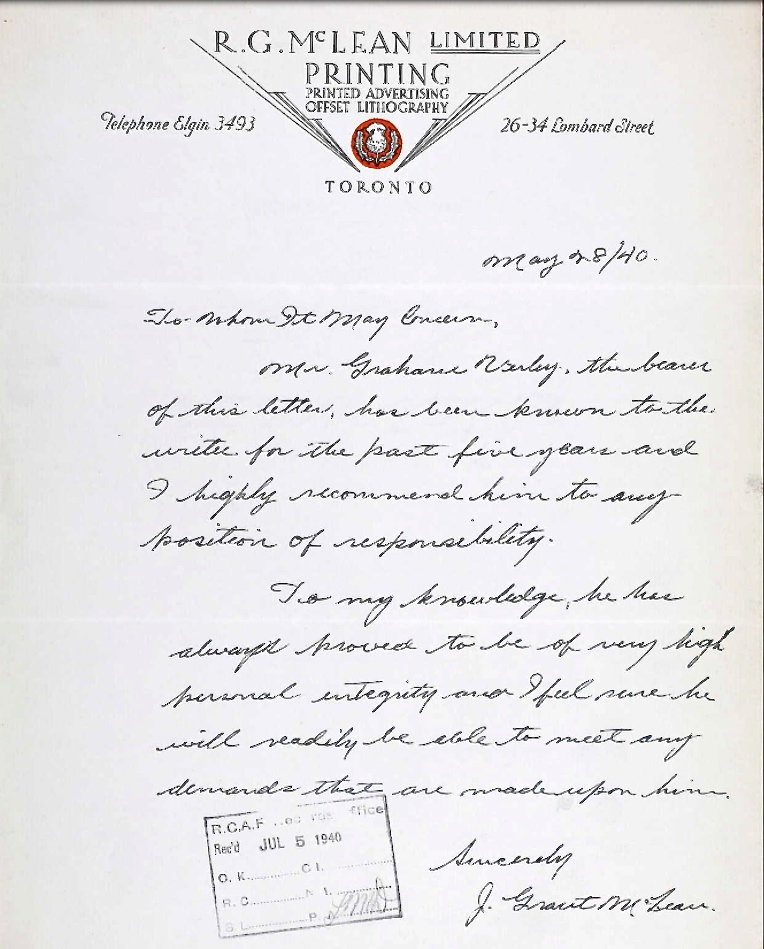 R.G. McLEAN LIMITED
PRINTING
PRINTED ADVERTISING
OFFSET LITHOGRAPHY
Telephone Elgin 3493
26-34 Lombard Street
TORONTO
May 28/40.
To Whom It May Concern,
Mr. Grahame, the bearer
of this letter, has been known to the
writer for the past five years and
I highly recommend him to any
position of responsibility.
To my knowledge, he has
always proved to be of very high
personal integrity and I feel sure he
will readily be able to meet any
demands that are made upon him.
R.C.A.F
Rec'd JUL 5 1940
O.K. C.I.
R.C. N.I.
S.I. P.
Sincerely
J. Grant McLean.